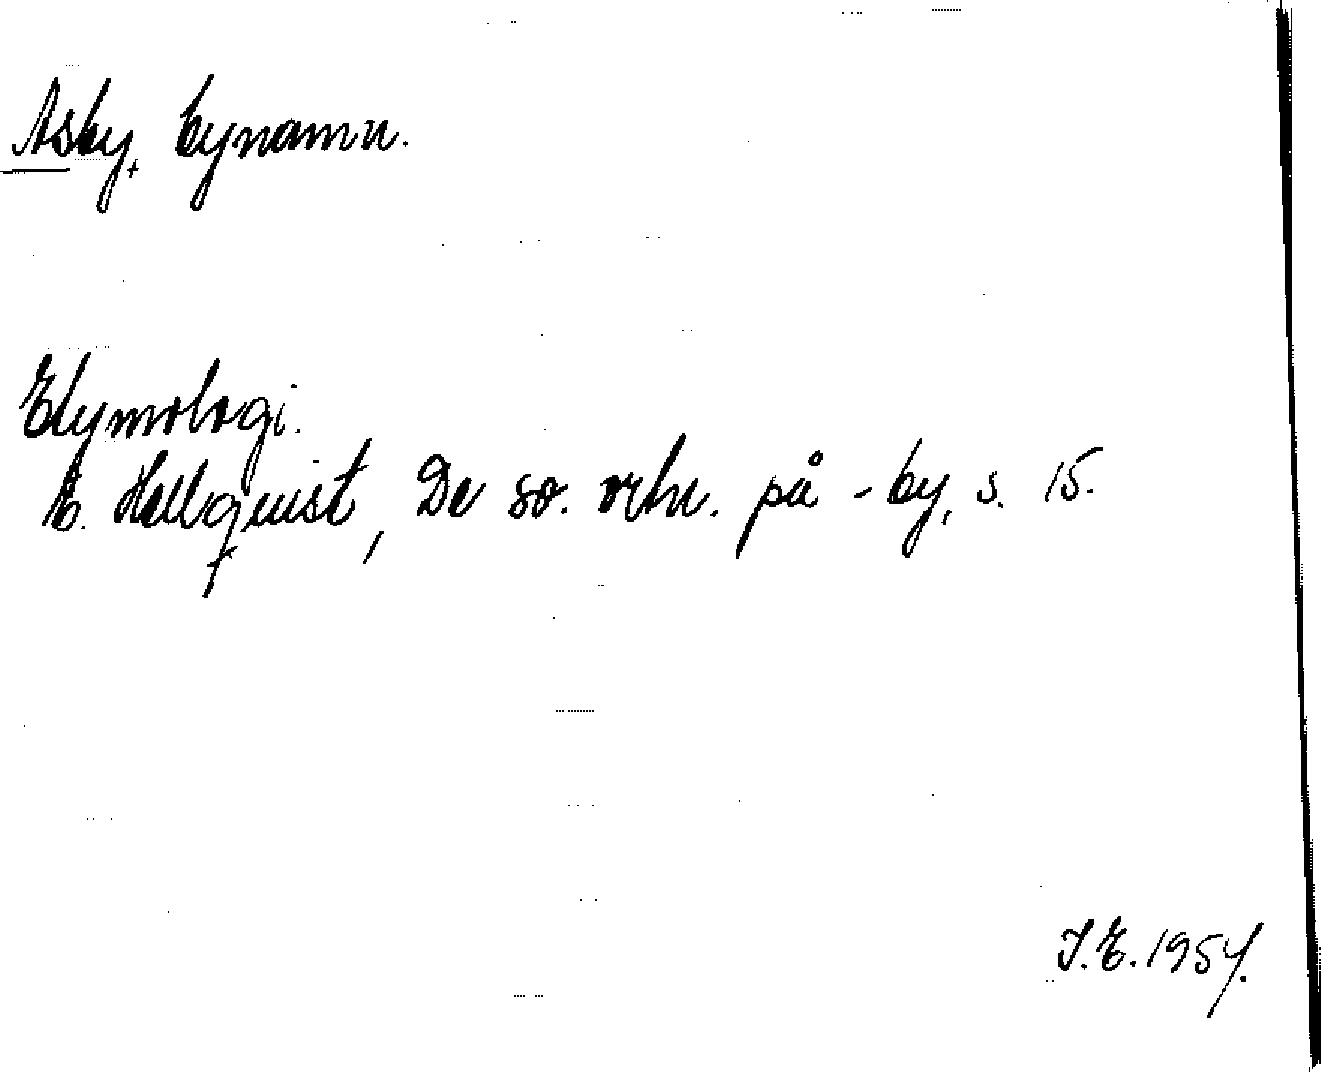 Asby, bynamn.
Etymologi.
E. Hellquist, De sv. ortn. på -by, s. 15.
I.E. 1954.